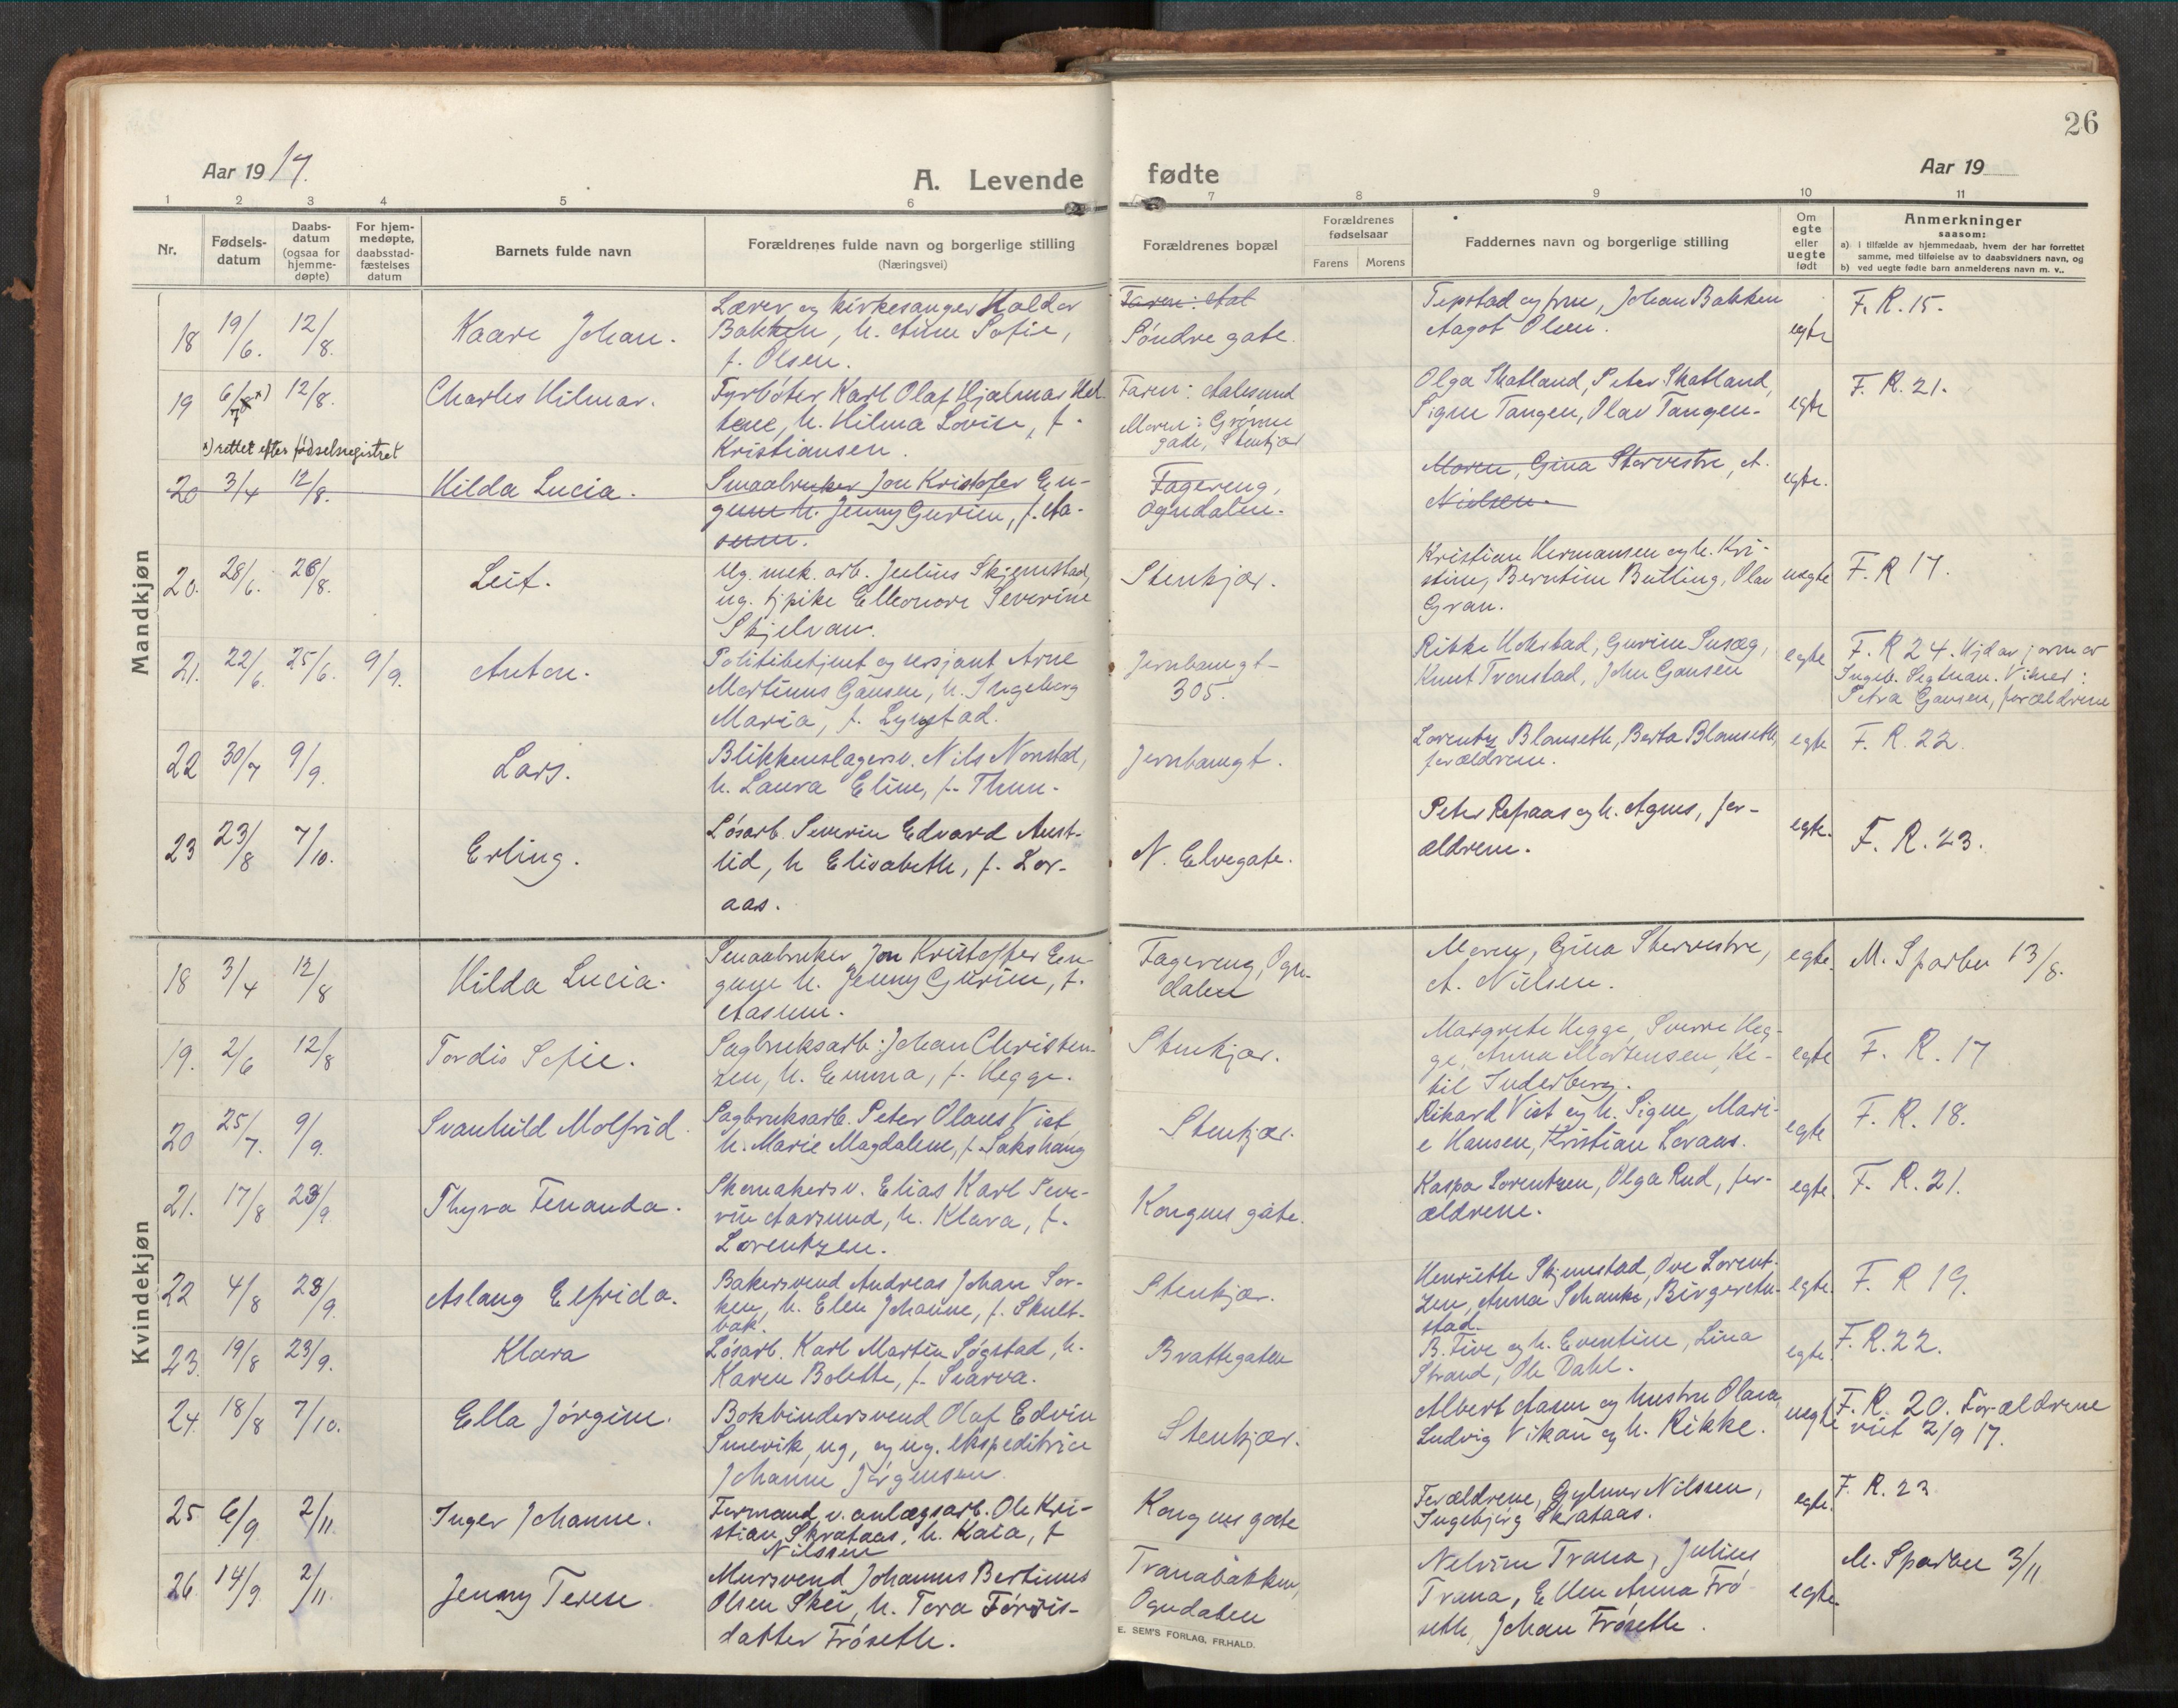 26
Aar 1917.
A. Levende fødte
Aar 19
1 2 3 4 5 6 7 8 9 10 11
Nr.
Fødsels-
datum
Daabs-
datum
(ogsaa for
hjemme-
døpte)
For hjem-
medøpte,
daabsstad-
fæstelses
datum
Barnets fulde navn
Forældrenes fulde navn og borgerlige stilling
(Næringsvei)
Forældrenes bopæl
Forældrenes
fødselsaar
Farens Morens
Faddernes navn og borgerlige stilling
Om
egte
eller
uegte
født
Anmerkninger
saasom:
a) i tilfælde av hjemmedaab, hvem der har forrettet
samme, med tilføielse av to daabsvidners navn, og
b) ved uegte fødte barn anmelderens navn m. v..
Mandkjøn
18 19/6. 12/8. Kaare Johan.
Lærer og kirkesanger Haldor
Bakken, h. Anne Sofie,
f. Olsen.
Søndre gate.
og frue, Johan Bakken
Aagot Olsen.
egte
F. R. 15.
19 6/7 x) 12/8. Charles Hilmar.
x) rettet efter fødselsregistret
Fyrbøter Karl Olaf Hjalmar
h. Hilma Lovise, f.
Kristiansen.
Faren: Aalesund
Moren: Grønne
gate, Stenkjær
Olga Skatland, Peter Skatland,
Signe Tangen, Olav Tangen.
egte
F. R. 21.
20 3/4 12/8. Hilda Lucia.
Smaabruker Jon Kristofer En-
gum h. Jenny Gurine, f. Aa-
sum.
Fagereng,
Ogndalen.
Moren, Gina Størvestre, A.
Nielsen.
egte.
20. 28/6. 26/8. Leif.
Ug. mek. arb. Julius Skjemstad,
ug. tjpike Elleonore Severine
Skjelvan.
Stenkjær.
Kristian Hermansen og h. Kri-
stine, Berntine Butling, Olav
Gran.
uegte
F. R 17.
21. 22/6. 25/6. 9/9. Anton.
Politibetjent og sersjant Arne
Martinus Gansen, h. Ingeborg
Maria, f. Lyngstad.
Jernbanegt-
305.
Rikke Hokstad, Gurine
Knut Tronstad, John Gansen
egte
F. R 24. Hjd av jormor
Ingeb. Vitner:
Petra Gansen, forældrene
22 30/7 9/9. Lars.
Blikkenslagersv. Nils Nonstad,
h. Laura Eline, f. Thun.
Jernbanegt.
Lorentz Blomseth, Berta Blomseth,
forældrene.
egte
F. R. 22.
23 23/8 7/10. Erling.
Løsarb. Severin Edvard Aust-
lid, h Elisabeth, f. Lor-
aas.
N. Elvegate.
Peter og h. Agnes, for-
ældrene.
egte.
F. R. 23.
Kvindekjøn
18 3/4 12/8 Hilda Lucia.
Smaabruker Jon Kristoffer En-
gum h. Jenny Gurine, f.
Aasum.
Fagereng, Ogn-
dalen
Moren, Gina Størvestre,
A. Nielsen.
egte.
M. Sparbu 13/8.
19. 2/6 12/8 Tordis Sofie.
Sagbruksarb. Johan Christen-
zen, h. Emma, f. Hegge.
Stenkjær.
Margrete Hegge, Sverre Heg-
ge, Anna Mortensen, Ke-
til Inderberg.
egte
F. R. 17
20 25/7. 9/9. Svanhild Molfrid.
Sagbruksarb. Peter Olaus Vist
h. Marie Magdalene, f. Sakshaug
Stenkjær.
Rikard Vist og h. Signe, Mari-
e Hansen, Kristian Loraas.
egte
F. R. 18.
21. 17/8 23/9 Thyra Fenanda.
Skomakersv. Elias Karl Seve-
rin Aarsund, h. Klara, f.
Lorentzen.
Kongens gate.
Kaspa Lorentzen, Olga Rud, for-
ældrene.
egte.
F. R. 21.
22 4/8 23/9. Aslaug Elfrida.
Bakersvend Andreas Johan Sor-
ken, h. Elen Johanne, f. Skult-
bak.
Stenkjær.
Henriette Skjemstad, Ove Lorent-
zen, Anna Schanke, Birger Au-
stad.
egte.
F. R 19.
23. 19/8 23/9. Klara
Løsarb. Karl Martin Søgstad, h.
Karen Bolette, f. Svarva.
Brattegaten
B. Five og h. Eventine, Lina
Strand, Ole Dahl.
egte.
F. R. 22.
24. 18/8 7/10. Ella Jørgine.
Bokbindersvend Olaf Edvin
Smevik, ug, og ug. ekspeditrice
Johanne Jørgensen.
Stenkjær.
Albert Aasum og hustru Olava,
Ludvig Vikan og h. Rikke.
uegte
F. R. 20. Forældrene
viet 2/9 17.
25 6/9. 2/11. Inger Johanne.
Formand v. anlægsarb. Ole Kri-
stian Skrataas, h. Kaia, f
Nilssen
Kongens gate
Forældrene, Nilssen,
Ingebjørg Skrataas.
egte.
F. R. 23
26. 14/9 2/11. Jenny Terese.
Mursvend Johannes Bertinus
Olsen Skei, h. Tora
datter Frøseth.
Tranabakken,
Ogndalen
Nelvine Trana, Julius
Trana, Ellen Anna Frø-
seth, Johan Frøseth.
egte
M. Sparbu 3/11
E. SEM'S FORLAG, FR.HALD.